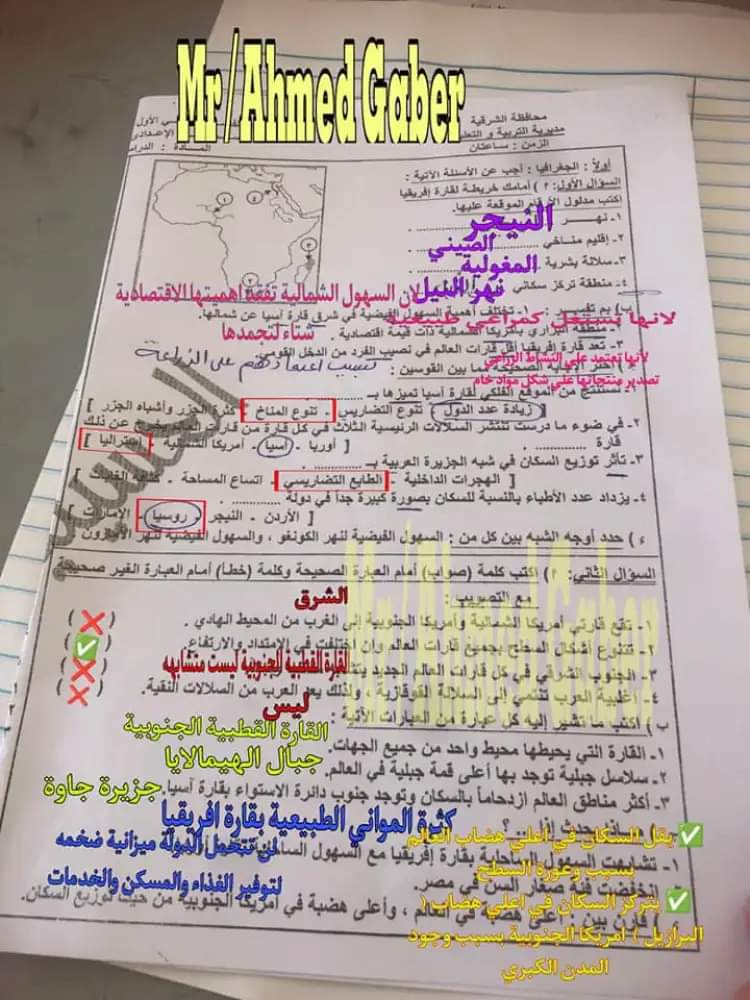 Mr / Ahmed Gaber
محافظة الشرقية
مديرية التربية و التعليم
الزمن : ساعتان
المادة : الدراسات
أولاً : الجغرافيا : أجب عن الأسئلة الآتية :
السؤال الأول: ٢ ) أمامك خريطة لقارة إفريقيا
اكتب مدلول الأرقام الموقعة عليها.
١- نهر
النيجر
٢- إقليم مناخي
الصيني
٣- سلالة بشرية
المغولية
٤- منطقة تركز سكاني
نهر النيل
لان السهول الشمالية تفقد اهميتها الاقتصادية
ب) بم تفسر : ١- تختلف أهمية السهول الفيضية في شرق قارة آسيا عن شمالها.
شتاء لتجمدها
لانها تستغل كمراعي طبيعية
٢- منطقة البراري بأمريكا الشمالية ذات قيمة اقتصادية .
٣- تعد قارة إفريقيا أقل قارات العالم في نصيب الفرد من الدخل القومي
لأنها تعتمد علي النشاط الزراعي
تصدير منتجاتها علي شكل مواد خام
بسبب اعتمادهم على الزراعة
اختر الإجابة الصحيحة مما بين القوسين :
١- نستنتج من الموقع الفلكي لقارة آسيا تميزها بـ
[ زيادة عدد الدول - تنوع التضاريس - تنوع المناخ - كثرة الجزر وأشباه الجزر ]
٢- في ضوء ما درست تنتشر السلالات الرئيسية الثلاث في كل قارة من قارات العالم يخرج عن ذلك
قارة [ أوربا - آسيا - أمريكا الشمالية - أستراليا ]
٣- تأثر توزيع السكان في شبه الجزيرة العربية بـ
[ الهجرات الداخلية - الطابع التضاريسي - اتساع المساحة - كثافة الغابات ]
٤- يزداد عدد الأطباء بالنسبة للسكان بصورة كبيرة جداً في دولة
[ الأردن - النيجر - روسيا - الإمارات ]
ء ) حدد أوجه الشبه بين كل من : السهول الفيضية لنهر الكونغو ، والسهول الفيضية لنهر الأمازون
السؤال الثاني: ٢ ) اكتب كلمة (صواب) أمام العبارة الصحيحة وكلمة (خطأ) أمام العبارة الغير صحيحة
مع التصويب
الشرق
١- تقع قارتي أمريكا الشمالية وأمريكا الجنوبية إلى الغرب من المحيط الهادي .
٢- تتنوع أشكال السطح بجميع قارات العالم وإن اختلفت في الامتداد والارتفاع
القارة القطبية الجنوبية ليست متشابهه
٣- الجنوب الشرقي في كل قارات العالم الجديد
٤- أغلبية العرب تنتمي إلى السلالة القوقازية ، ولذلك يعد العرب من السلالات النقية.
ليس
Mr/Ahmed Gaber
ب ) اكتب ما تشير إليه كل عبارة من العبارات الآتية :
القارة القطبية الجنوبية
١- القارة التي يحيطها محيط واحد من جميع الجهات.
جبال الهيمالايا
٢- سلاسل جبلية توجد بها أعلى قمة جبلية في العالم.
جزيرة جاوة
٣- أكثر مناطق العالم ازدحاماً بالسكان وتوجد جنوب دائرة الاستواء بقارة آسيا.
كثرة المواني الطبيعية بقارة افريقيا
ماذا يحدث إذا ... ؟
يقل السكان في اعلي هضاب العالم
بسبب وعورة السطح
١- تشابهت السهول الساحلية بقارة إفريقيا مع السهول الساحلية
لن تتحمل الدولة ميزانية ضخمه
لتوفير الغذاء والمسكن والخدمات
٢- انخفضت فئة صغار السن في مصر.
يتركز السكان في اعلي هضاب (
قارن بين : أعلى هضبة في العالم ، وأعلى هضبة في أمريكا الجنوبية من حيث توزيع السكان.
البرازيل ) امريكا الجنوبية بسبب وجود
المدن الكبري